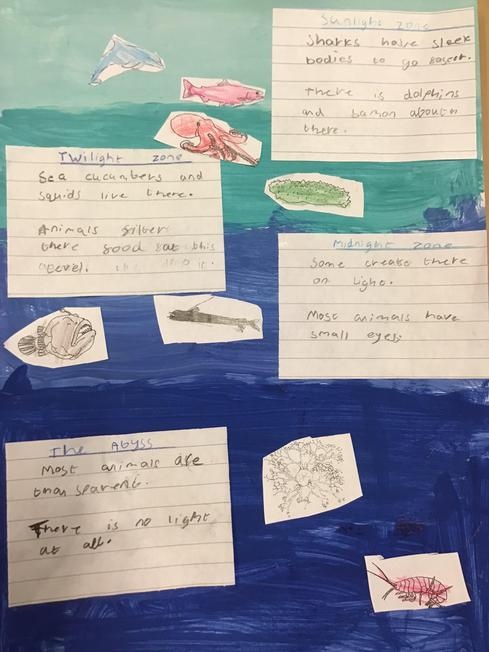 Sunlight zone
Sharks have sleek
bodies to go faseer.
There is dolphins
and
there.
Twilight zone
Sea cucumbers and
squids live there.
Animals
there food at this
Midnight zone
Some creats there
on light.
Most animals have
small eyes.
The Abyss
Most animals are
transparent.
There is no light
at all.